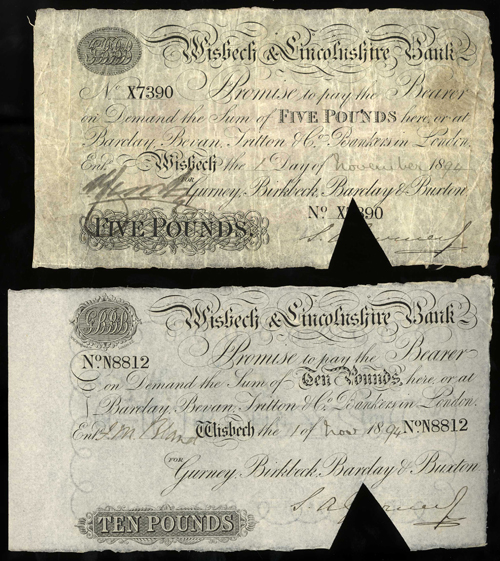 Wisbech & Lincolnshire Bank
No X7390 I Promise to pay the Bearer
on Demand the Sum of FIVE POUNDS here, or at
Barclay, Bevan, Tritton & Co. Bankers in London.
Entd. Wisbech the 1 Day of November 1894
FOR Gurney, Birkbeck, Barclay & Buxton
No X 390
FIVE POUNDS.
GBBB
Wisbech & Lincolnshire Bank
No N8812 I Promise to pay the Bearer
on Demand the Sum of Ten Pounds, here, or at
Barclay, Bevan, Tritton & Co. Bankers in London.
Entd. Wisbech the 1 of Novr 1894 No N8812
FOR Gurney, Birkbeck, Barclay & Buxton
TEN POUNDS